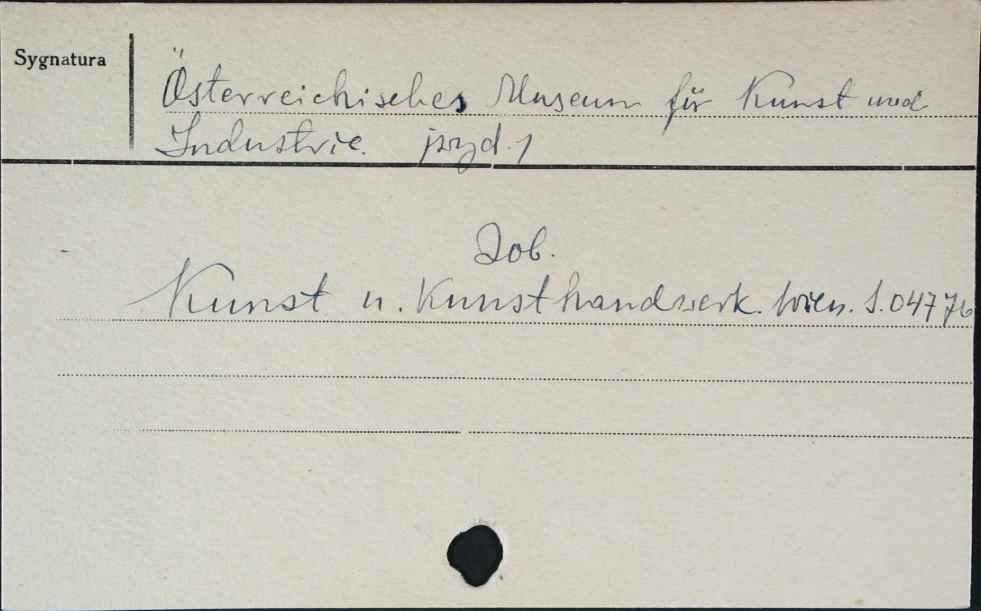 Sygnatura
Österreichisches Museum für Kunst und
Industrie.
Zob.
Kunst u. Kunsthandwerk. Wien. S.04776